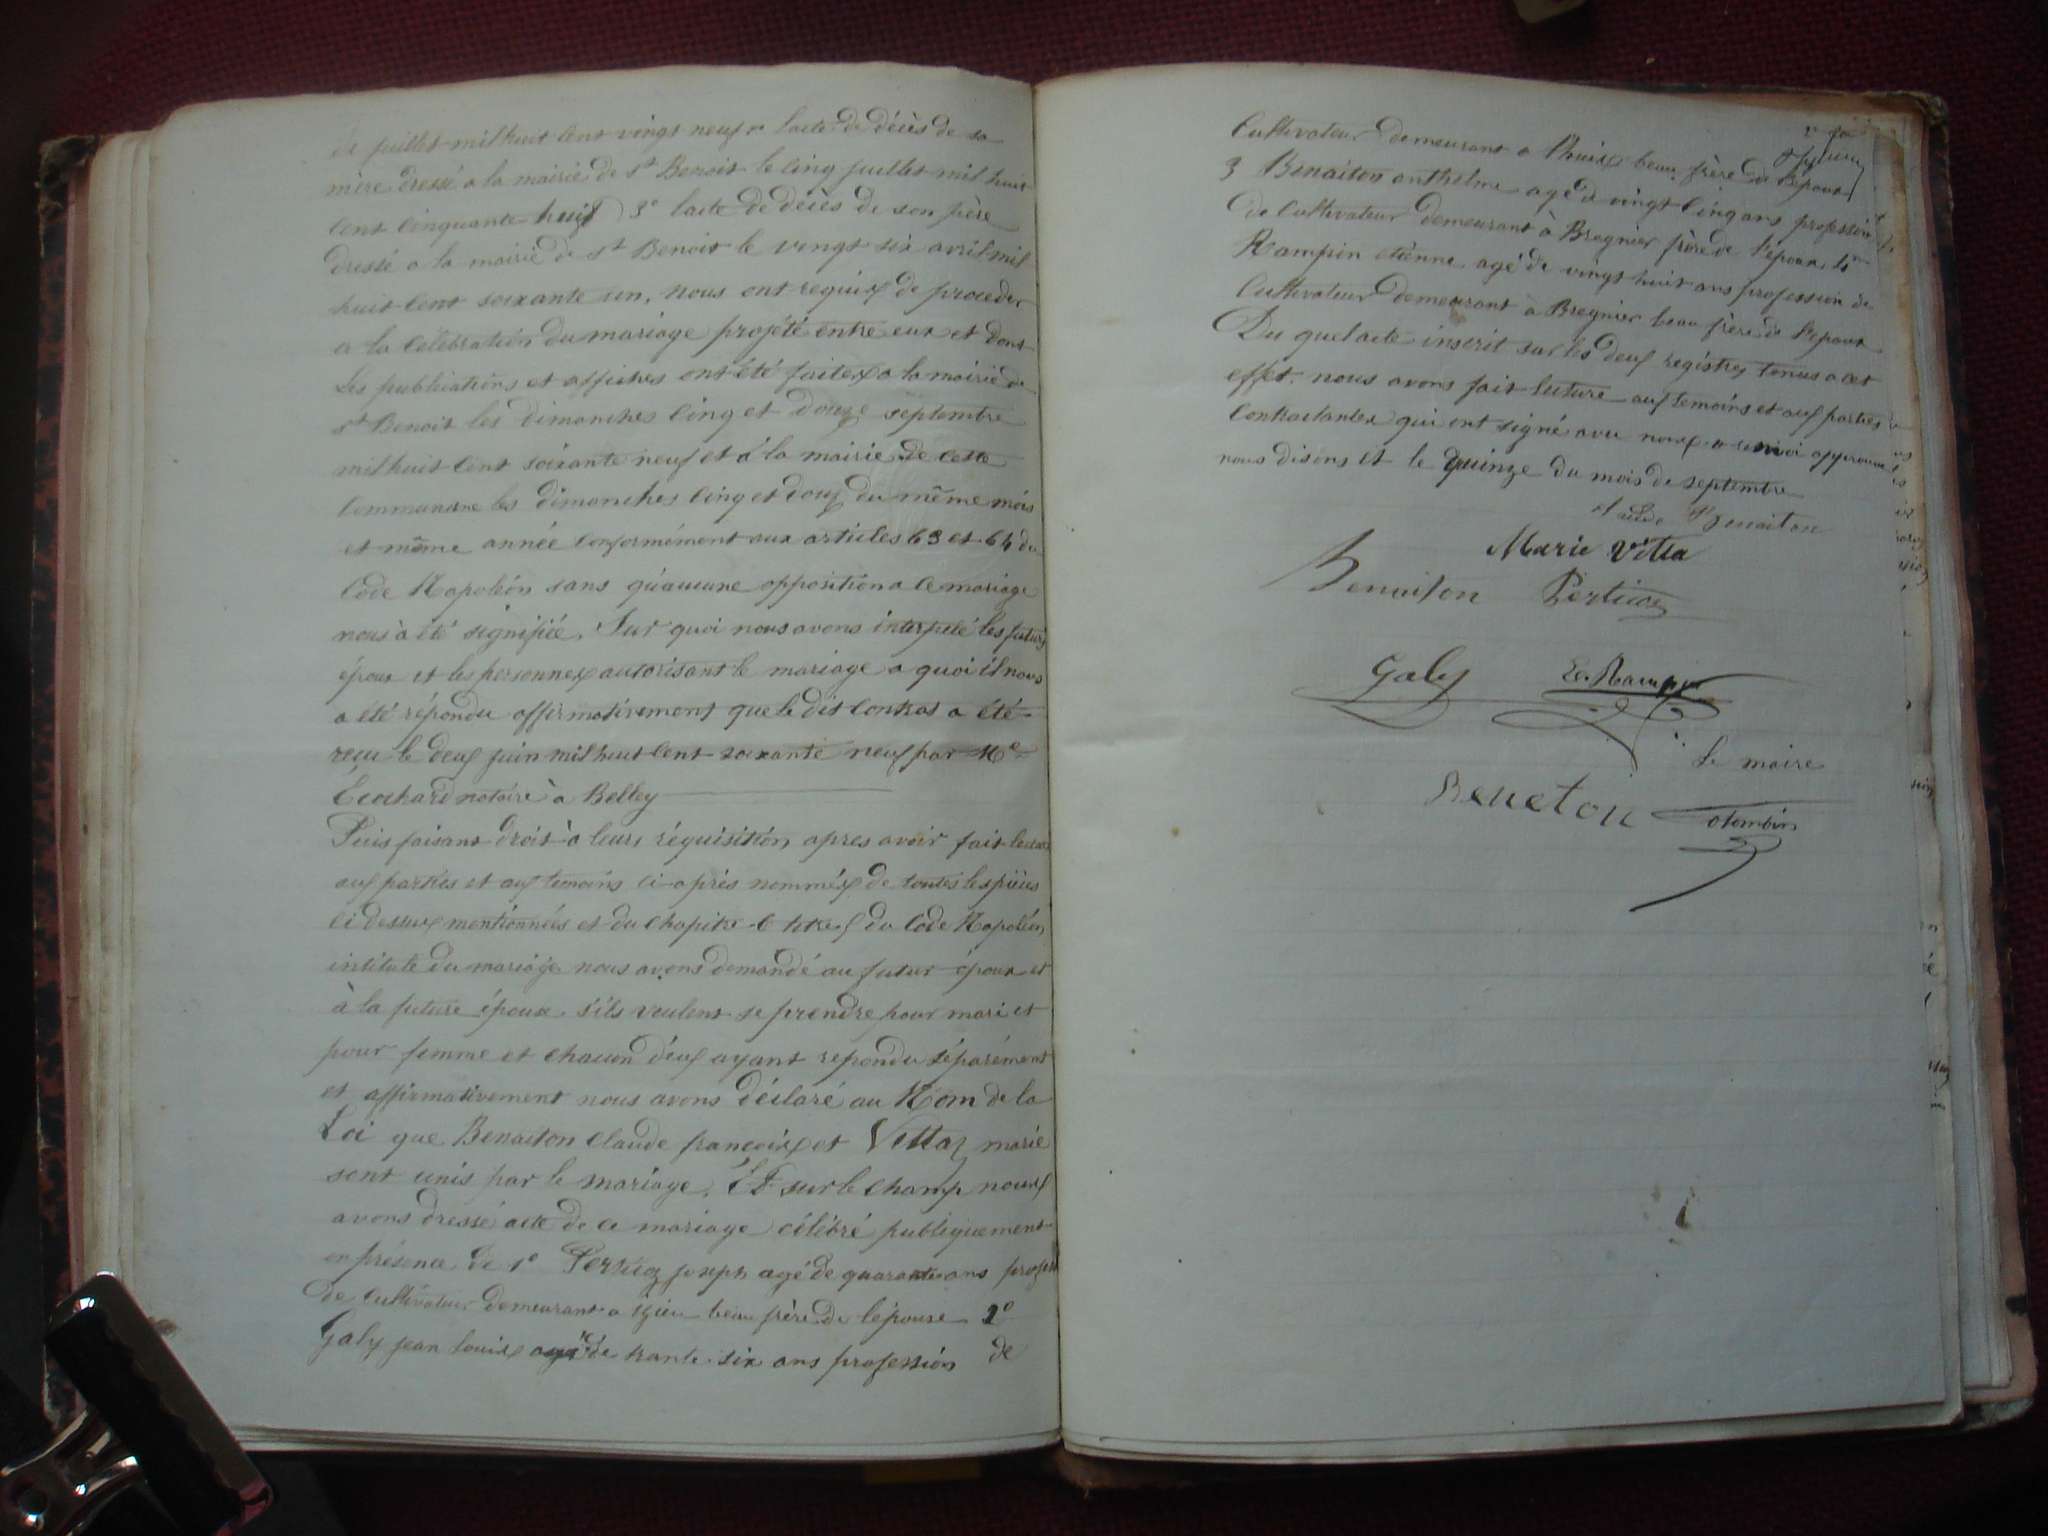 de juillet mil huit cent vingt neuf 2° l'acte de décès de sa
mère dressé a la mairie de st Benoit le cinq juillet mil huit
cent cinquante huit 3° l'acte de décès de son père
dressé a la mairie de st Benoit le vingt six avril mil
huit cent soixante un, nous ont requis de proceder
a la célébration du mariage projété entre eux et dont
les publications et affiches ont été faites a la mairie de
st Benoit les dimanches cinq et douze septembre
mil huit cent soixante neuf et à la mairie de cette
commune les dimanches cinq et douze du même mois
et même année conformément aux articles 63 et 64 du
Code Napoléon sans qu'aucune opposition a ce mariage
nous a été signifiée. Sur quoi nous avons interpelé les futurs
époux et les personnes autorisant le mariage a quoi il nous
a été répondu affirmativement que le dit contrat a été
reçu le deux juin mil huit cent soixante neuf par Me
Cochard notaire à Belley
Puis faisant droit à leurs réquisition, apres avoir fait lecture
aux parties et aux temoins ci-après nommés de toutes les pièces
ci dessus mentionnées et du chapitre 6 titre 5 du Code Napoléon
intitulé du mariage nous avons demandé au futur époux et
à la future épouse s'ils veulent se prendre pour mari et
pour femme et chacun d'eux ayant repondu séparément
et affirmativement nous avons déclaré au Nom de la
Loi que Benaiton Claude françois et Vittaz marie
sont unis par le mariage. Et sur le champ nous
avons dressé acte de ce mariage célébré publiquement
en présence de 1° Perticoz joseph agé de quarante ans profess
de cultivateur demeurant a izieu beau frère de l'épouse 2°
Galy jean louis agé de trante six ans profession de
Cultivateur demeurant a beau frère de l'epoux
3 Benaiton anthelme agé de vingt cinq ans profession
de Cultivateur demeurant à Bregnier frère de l'epoux 4°
Rampin etienne agé de vingt huit ans profession de
Cultivateur demeurant à Bregnier beau frère de l'epoux
Du quel acte inscrit sur les deux registres tenus a cet
effet. nous avons fait lecture aux temoins et aux parties
Contractantes qui ont signé avec nous a renvoi approuvé
nous disons et le quinze du mois de septembre
Claude Benaiton
Marie Vitta
Benaiton Perticoz
Galy Et. Rampin
Le maire
Beneton Colombin